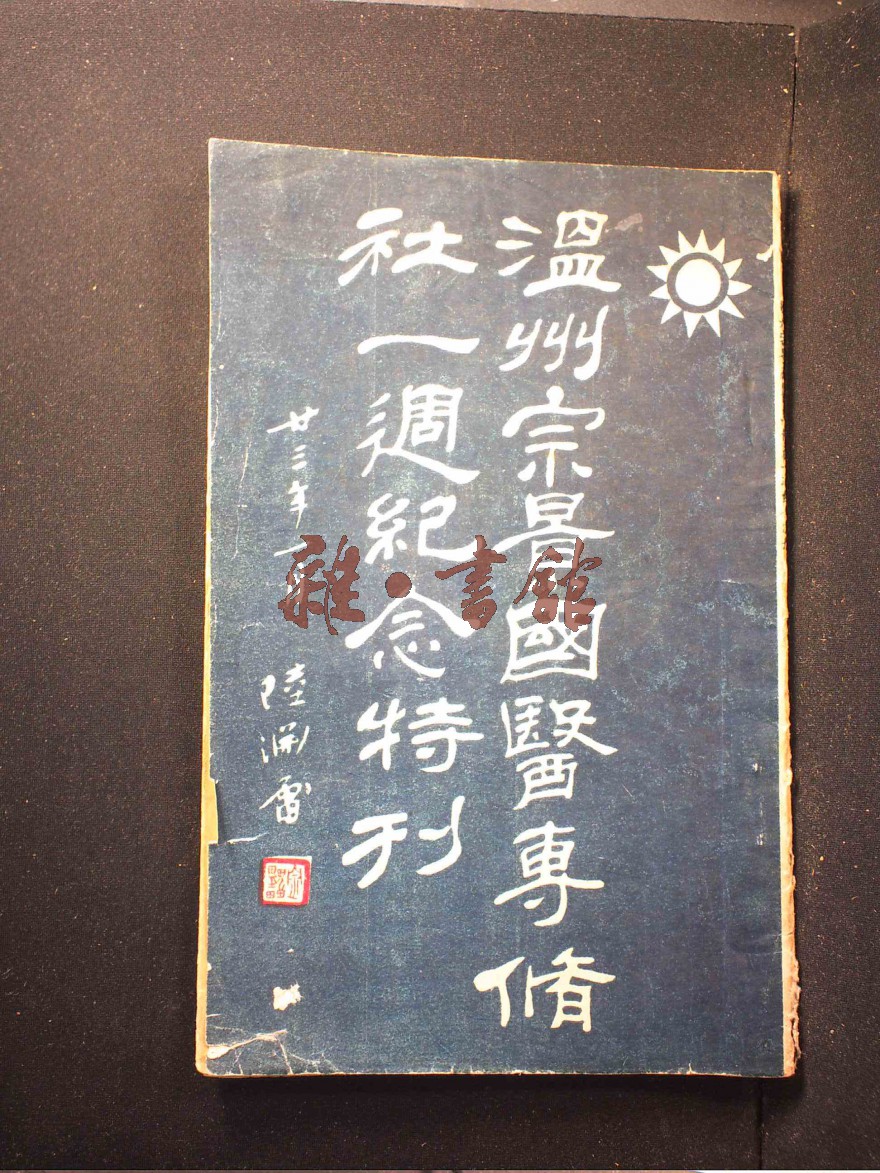 溫州宗景國醫專脩
社一週紀念特刊
廿三年
陸渊雷
雜·書館